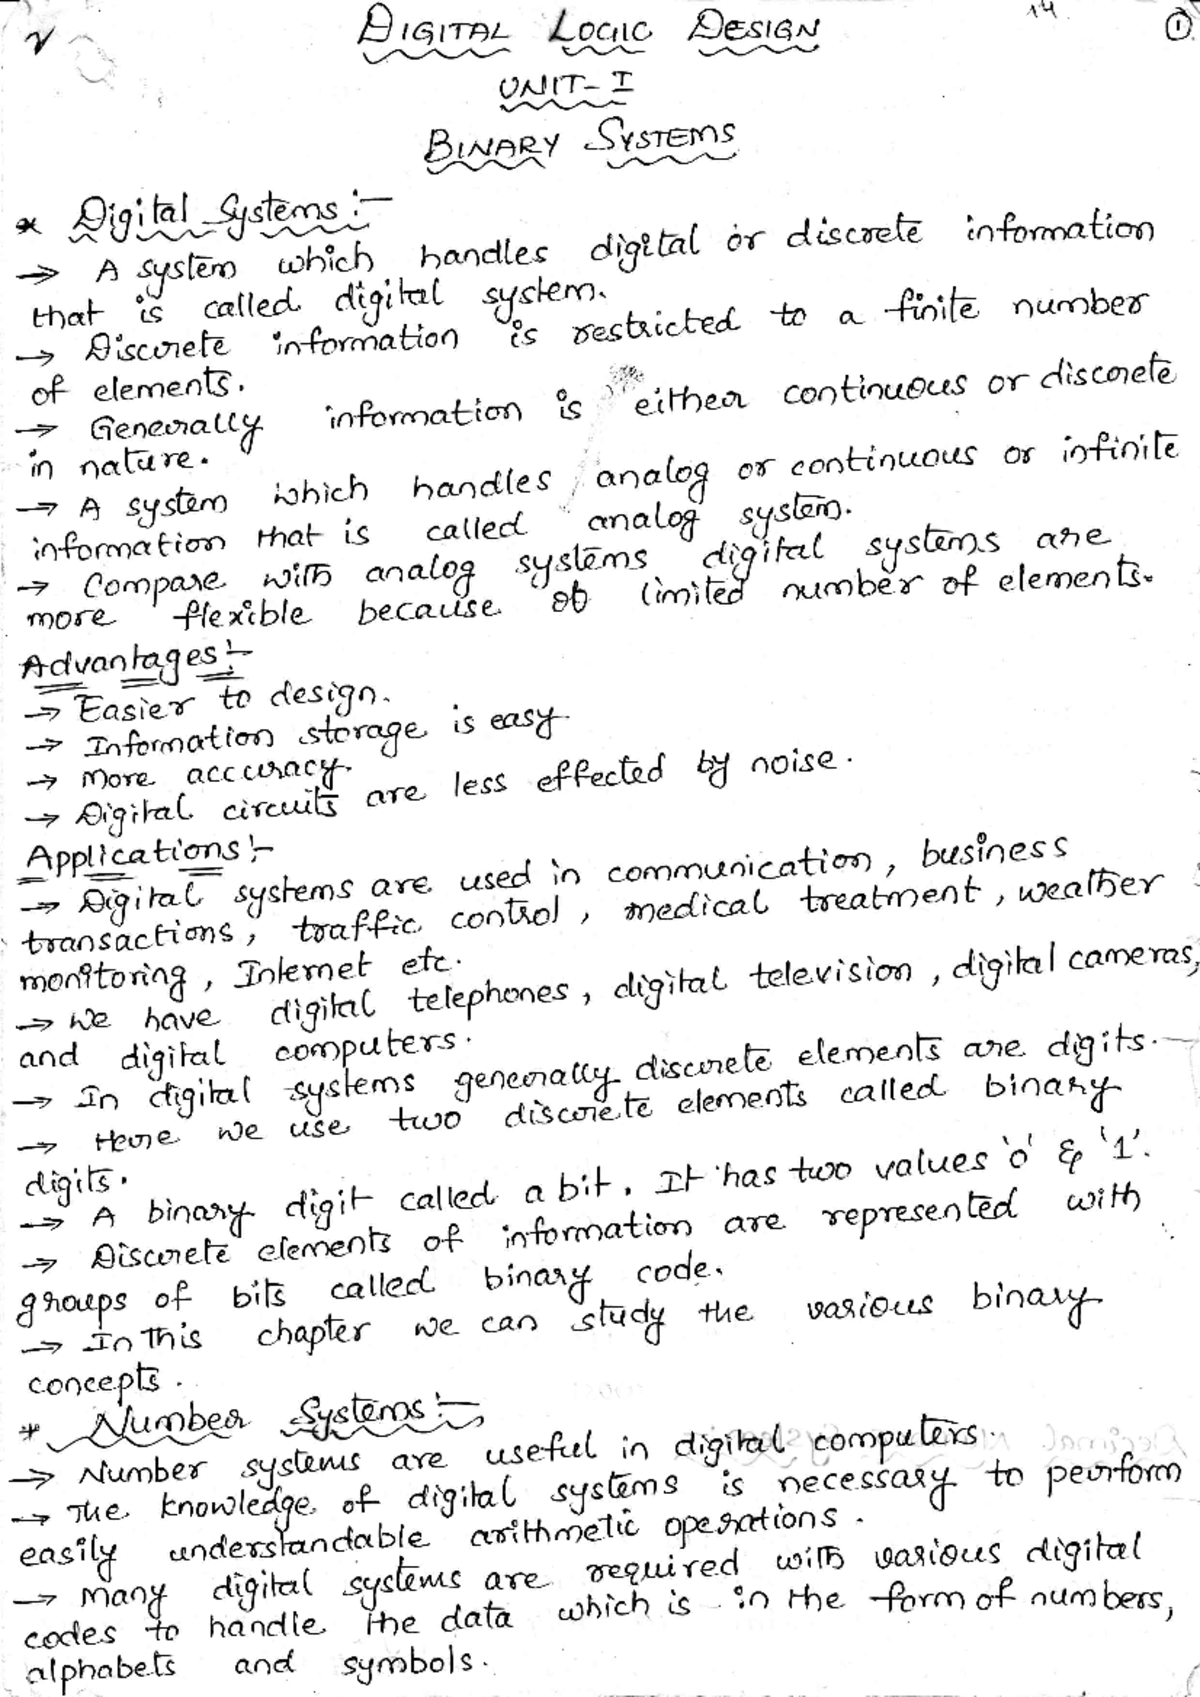 14 1
DIGITAL LOGIC DESIGN
UNIT-I
BINARY SYSTEMS
* Digital Systems:-
→ A system which handles digital or discrete information
that is called digital system.
→ Discrete information is restricted to a finite number
of elements.
→ Generally information is either continuous or discrete
in nature.
→ A system which handles analog or continuous or infinite
information that is called analog system.
→ Compare with analog systems digital systems are
more flexible because of limited number of elements.
Advantages:-
→ Easier to design.
→ Information storage is easy.
→ More accuracy.
→ Digital circuits are less effected by noise.
Applications:-
→ Digital systems are used in communication, business
transactions, traffic control, medical treatment, weather
monitoring, Internet etc.
→ We have digital telephones, digital television, digital cameras,
and digital computers.
→ In digital systems generally discrete elements are digits.
→ Here we use two discrete elements called binary
digits.
→ A binary digit called a bit. It has two values '0' & '1'.
→ Discrete elements of information are represented with
groups of bits called binary code.
→ In this chapter we can study the various binary
concepts.
* Number Systems:-
→ Number systems are useful in digital computers.
→ The knowledge of digital systems is necessary to perform
easily understandable arithmetic operations.
→ Many digital systems are required with various digital
codes to handle the data which is in the form of numbers,
alphabets and symbols.